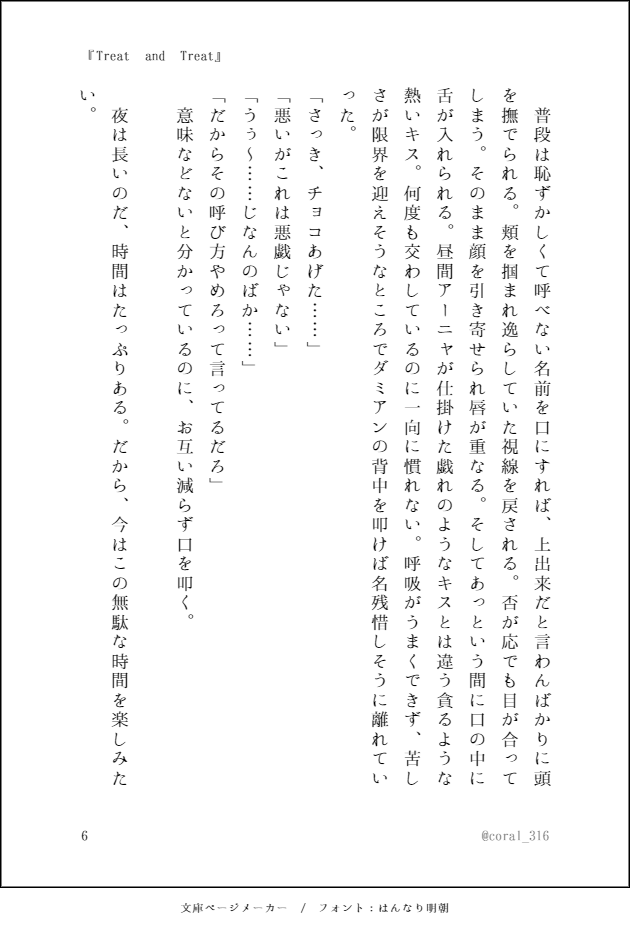 『Treat and Treat』
　普段は恥ずかしくて呼べない名前を口にすれば、上出来だと言わんばかりに頭
を撫でられる。頬を掴まれ逸らしていた視線を戻される。否が応でも目が合って
しまう。そのまま顔を引き寄せられ唇が重なる。そしてあっという間に口の中に
舌が入れられる。昼間アーニャが仕掛けた戯れのようなキスとは違う貪るような
熱いキス。何度も交わしているのに一向に慣れない。呼吸がうまくできず、苦し
さが限界を迎えそうなところでダミアンの背中を叩けば名残惜しそうに離れてい
った。
「さっき、チョコあげた……」
「悪いがこれは悪戯じゃない」
「うぅ～……じなんのばか……」
「だからその呼び方やめろって言ってるだろ」
　意味などないと分かっているのに、お互い減らず口を叩く。
　夜は長いのだ、時間はたっぷりある。だから、今はこの無駄な時間を楽しみた
い。
6
@coral_316
文庫ページメーカー　/　フォント：はんなり明朝